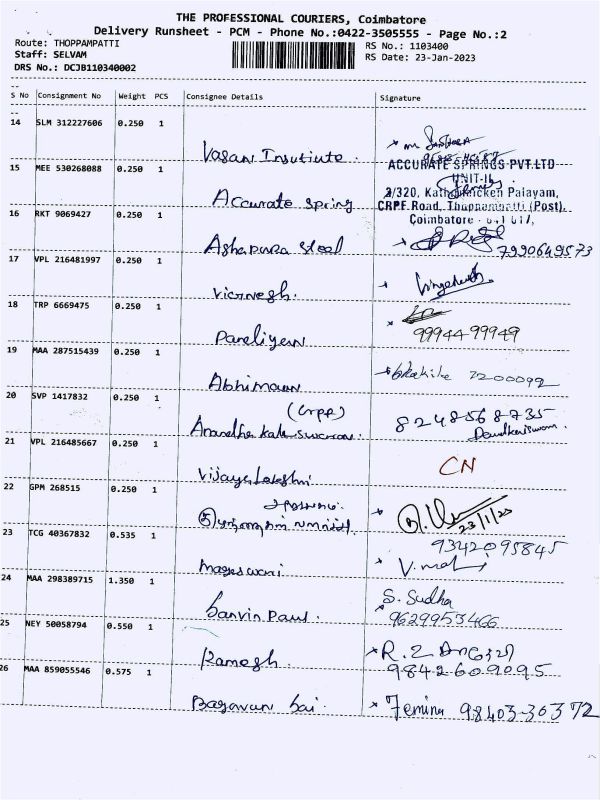 THE PROFESSIONAL COURIERS, Coimbatore
Delivery Runsheet - PCM - Phone No.:0422-3505555 - Page No.:2
Route: THOPPAMPATTI
RS No.: 1103400
Staff: SELVAM
RS Date: 23-Jan-2023
DRS No.: DCJB110340002
S No Consignment No Weight PCS Consignee Details Signature
14 SLM 312227606 0.250 1
Vasan Institute.
15 MEE 530268088 0.250 1
ACCURATE SPRINGS PVT.LTD
UNIT-II,
Accurate spring
3/320, Kathirnaicken Palayam,
CRPF Road, Thoppampatti (Post),
Coimbatore - 641 017,
16 RKT 9069427 0.250 1
Ashapura Steel
7990649573
17 VPL 216481997 0.250 1
Vignesh.
18 TRP 6669475 0.250 1
99944 99949
19 MAA 287515439 0.250 1
2200092
20 SVP 1417832 0.250 1
(Crpf)
8248568735
21 VPL 216485667 0.250 1
Vijayalakshmi
CN
22 GPM 268515 0.250 1
23/1/23
23 TCG 40367832 0.535 1
9342095845
Mageswari
24 MAA 298389715 1.350 1
S. Sudha
Sanvin Paul.
9629953466
25 NEY 50058794 0.550 1
Ramesh.
9842609095
26 MAA 859055546 0.575 1
Bagavan bai.
Femina 98403-30372